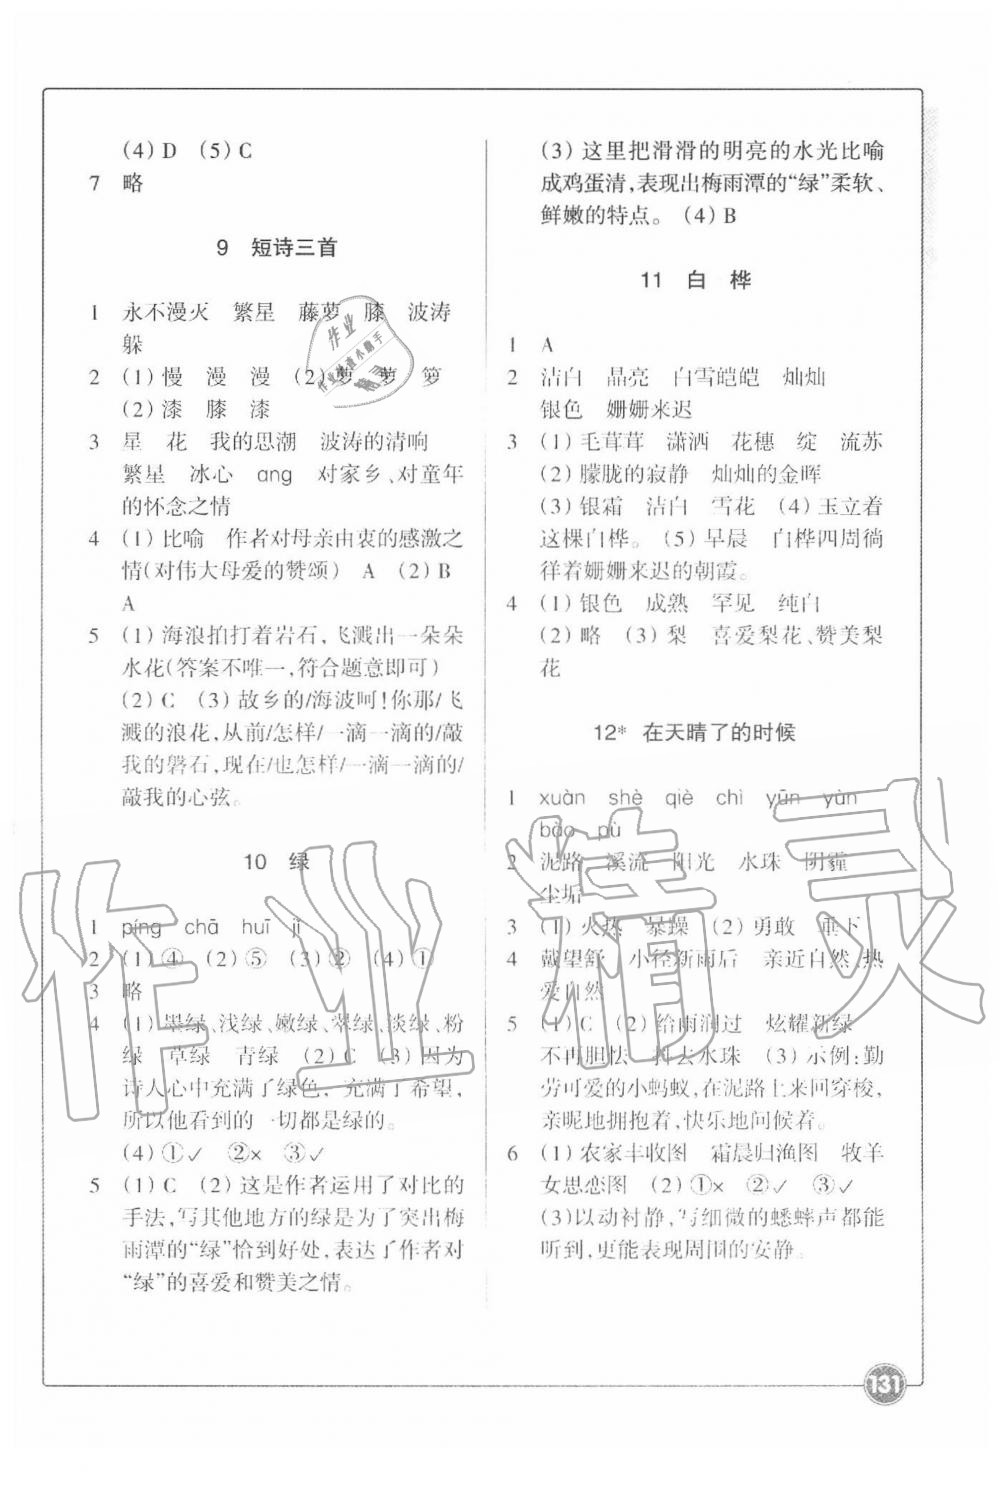 (4) D (5) C
7 略
9 短诗三首
1 永不漫灭 繁星 藤萝 膝 波涛
躲
2 (1) 慢 漫 漫 (2) 萝 萝 箩
(2) 漆 膝 漆
3 星 花 我的思潮 波涛的清响
繁星 冰心 ang 对家乡、对童年
的怀念之情
4 (1) 比喻 作者对母亲由衷的感激之
情(对伟大母爱的赞颂) A (2) B
A
5 (1) 海浪拍打着岩石,飞溅出一朵朵
水花(答案不唯一,符合题意即可)
(2) C (3) 故乡的/海波呵!你那/飞
溅的浪花,从前/怎样/一滴一滴的/敲
我的磐石,现在/也怎样/一滴一滴的/
敲我的心弦。
10 绿
1 píng chā huī jí
2 (1) ④ (2) ⑤ (3) ② (4) ①
3 略
4 (1) 墨绿、浅绿、嫩绿、翠绿、淡绿、粉
绿 草绿 青绿 (2) C (3) 因为
诗人心中充满了绿色,充满了希望,
所以他看到的一切都是绿的。
(4) ①✓ ②× ③✓
5 (1) C (2) 这是作者运用了对比的
手法,写其他地方的绿是为了突出梅
雨潭的“绿”恰到好处,表达了作者对
“绿”的喜爱和赞美之情。
(3) 这里把滑滑的明亮的水光比喻
成鸡蛋清,表现出梅雨潭的“绿”柔软、
鲜嫩的特点。 (4) B
11 白 桦
1 A
2 洁白 晶亮 白雪皑皑 灿灿
银色 姗姗来迟
3 (1) 毛茸茸 潇洒 花穗 绽 流苏
(2) 朦胧的寂静 灿灿的金晖
(3) 银霜 洁白 雪花 (4) 玉立着
这棵白桦。 (5) 早晨 白桦四周徜
徉着姗姗来迟的朝霞。
4 (1) 银色 成熟 罕见 纯白
(2) 略 (3) 梨 喜爱梨花、赞美梨
花
12* 在天晴了的时候
1 xuàn shè qiè chì yūn yùn
bào pù
2 泥路 溪流 阳光 水珠 阴霾
尘垢
3 (1) 火热 暴躁 (2) 勇敢 垂下
4 戴望舒 小径新雨后 亲近自然、热
爱自然
5 (1) C (2) 给雨润过 炫耀新绿
不再胆怯 抖去水珠 (3) 示例:勤
劳可爱的小蚂蚁,在泥路上来回穿梭,
亲昵地拥抱着,快乐地问候着。
6 (1) 农家丰收图 霜晨归渔图 牧羊
女思恋图 (2) ①× ②✓ ③✓
(3) 以动衬静,写细微的蟋蟀声都能
听到,更能表现周围的安静。
131
作业精灵